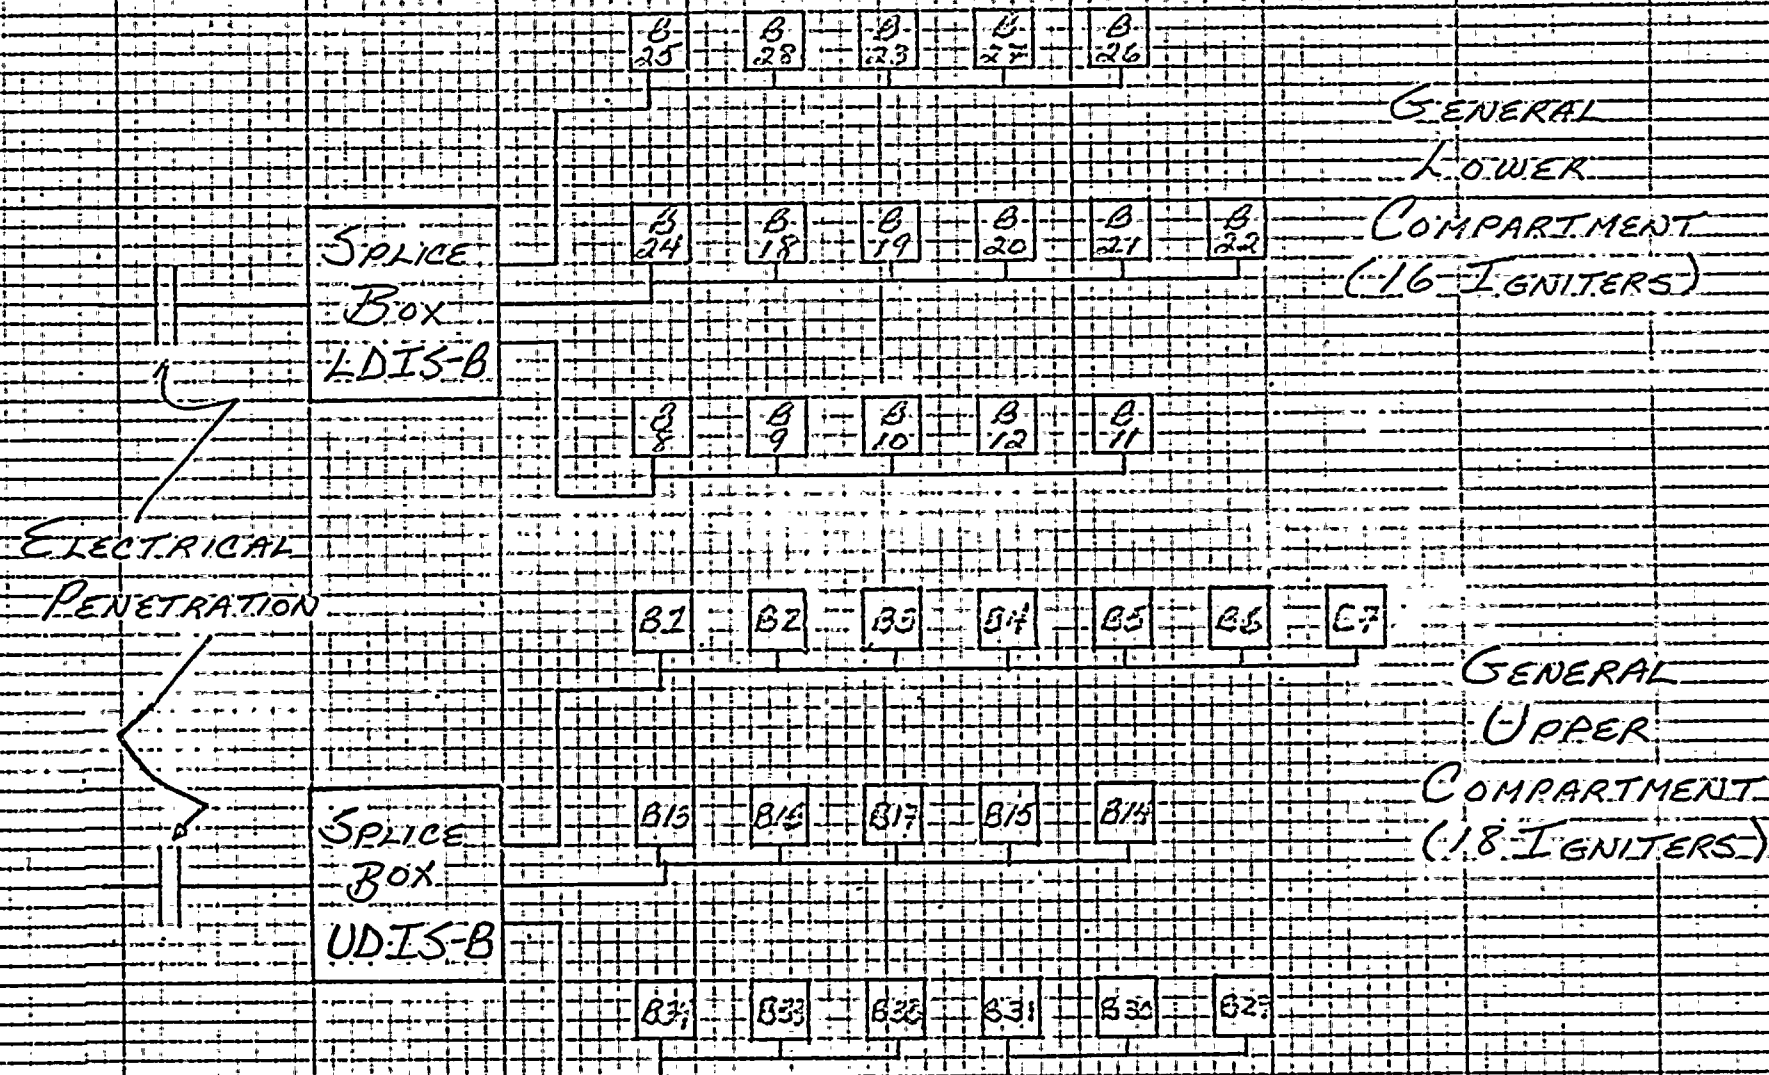 B 25 B 28 B 23 B 27 B 26
GENERAL
LOWER
COMPARTMENT
(16 IGNITERS)
SPLICE
BOX
LDIS-B
B 24 B 18 B 19 B 20 B 21 B 22
B 8 B 9 B 10 B 12 B 11
ELECTRICAL
PENETRATION
B1 B2 B3 B4 B5 B6
GENERAL
UPPER
COMPARTMENT
(18 IGNITERS)
SPLICE
BOX
UDIS-B
B16 B17 B14
B33 B31 B30